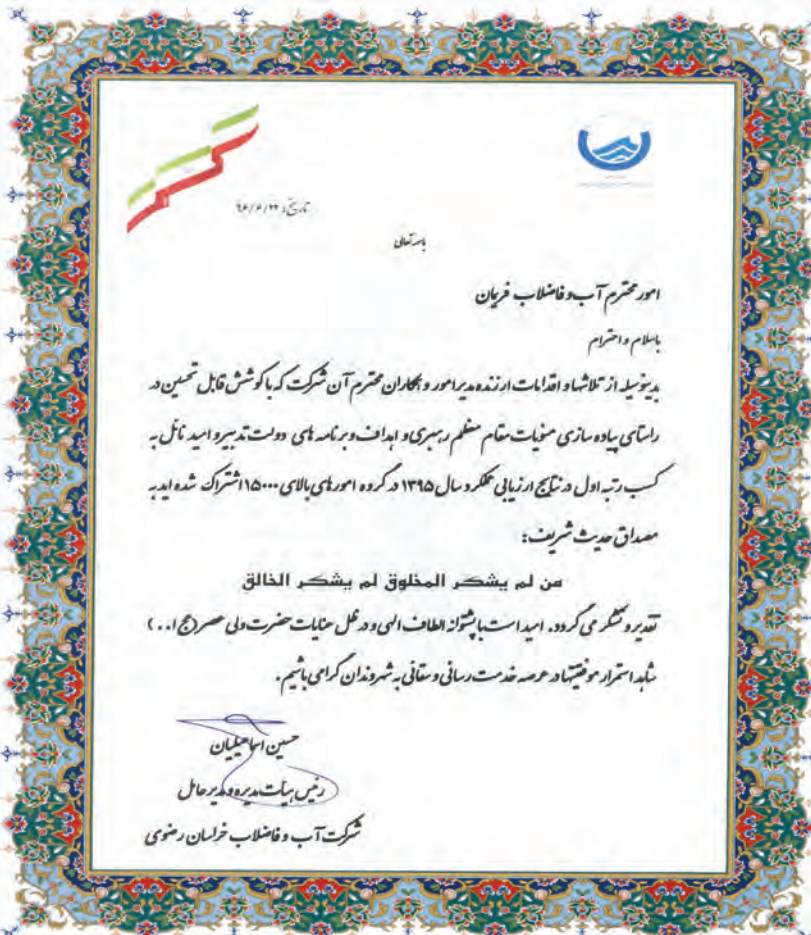 تاریخ: ۹۶/۶/۲۲
باسمه تعالی
امور محترم آب و فاضلاب فریمان
باسلام و احترام
بدینوسیله از تلاشها و اقدامات ارزنده مدیر امور و همکاران محترم آن شرکت که با کوشش قابل تحسین در
راستای پیاده سازی منویات مقام معظم رهبری و اهداف و برنامه های دولت تدبیر و امید نائل به
کسب رتبه اول در نتایج ارزیابی عملکرد سال ۱۳۹۵ در گروه امورهای بالای ۱۵۰۰۰ اشتراک شده اید به
مصداق حدیث شریف:
من لم یشکر المخلوق لم یشکر الخالق
تقدیر و تشکر می گردد. امید است با پشتوانه الطاف الهی و در ظل عنایات حضرت ولی عصر (عج ا..)
شاهد استمرار موفقیتها در عرصه خدمت رسانی و سقائی به شهروندان گرامی باشیم.
حسین اسماعیلیان
رئیس هیأت مدیره و مدیرعامل
شرکت آب و فاضلاب خراسان رضوی